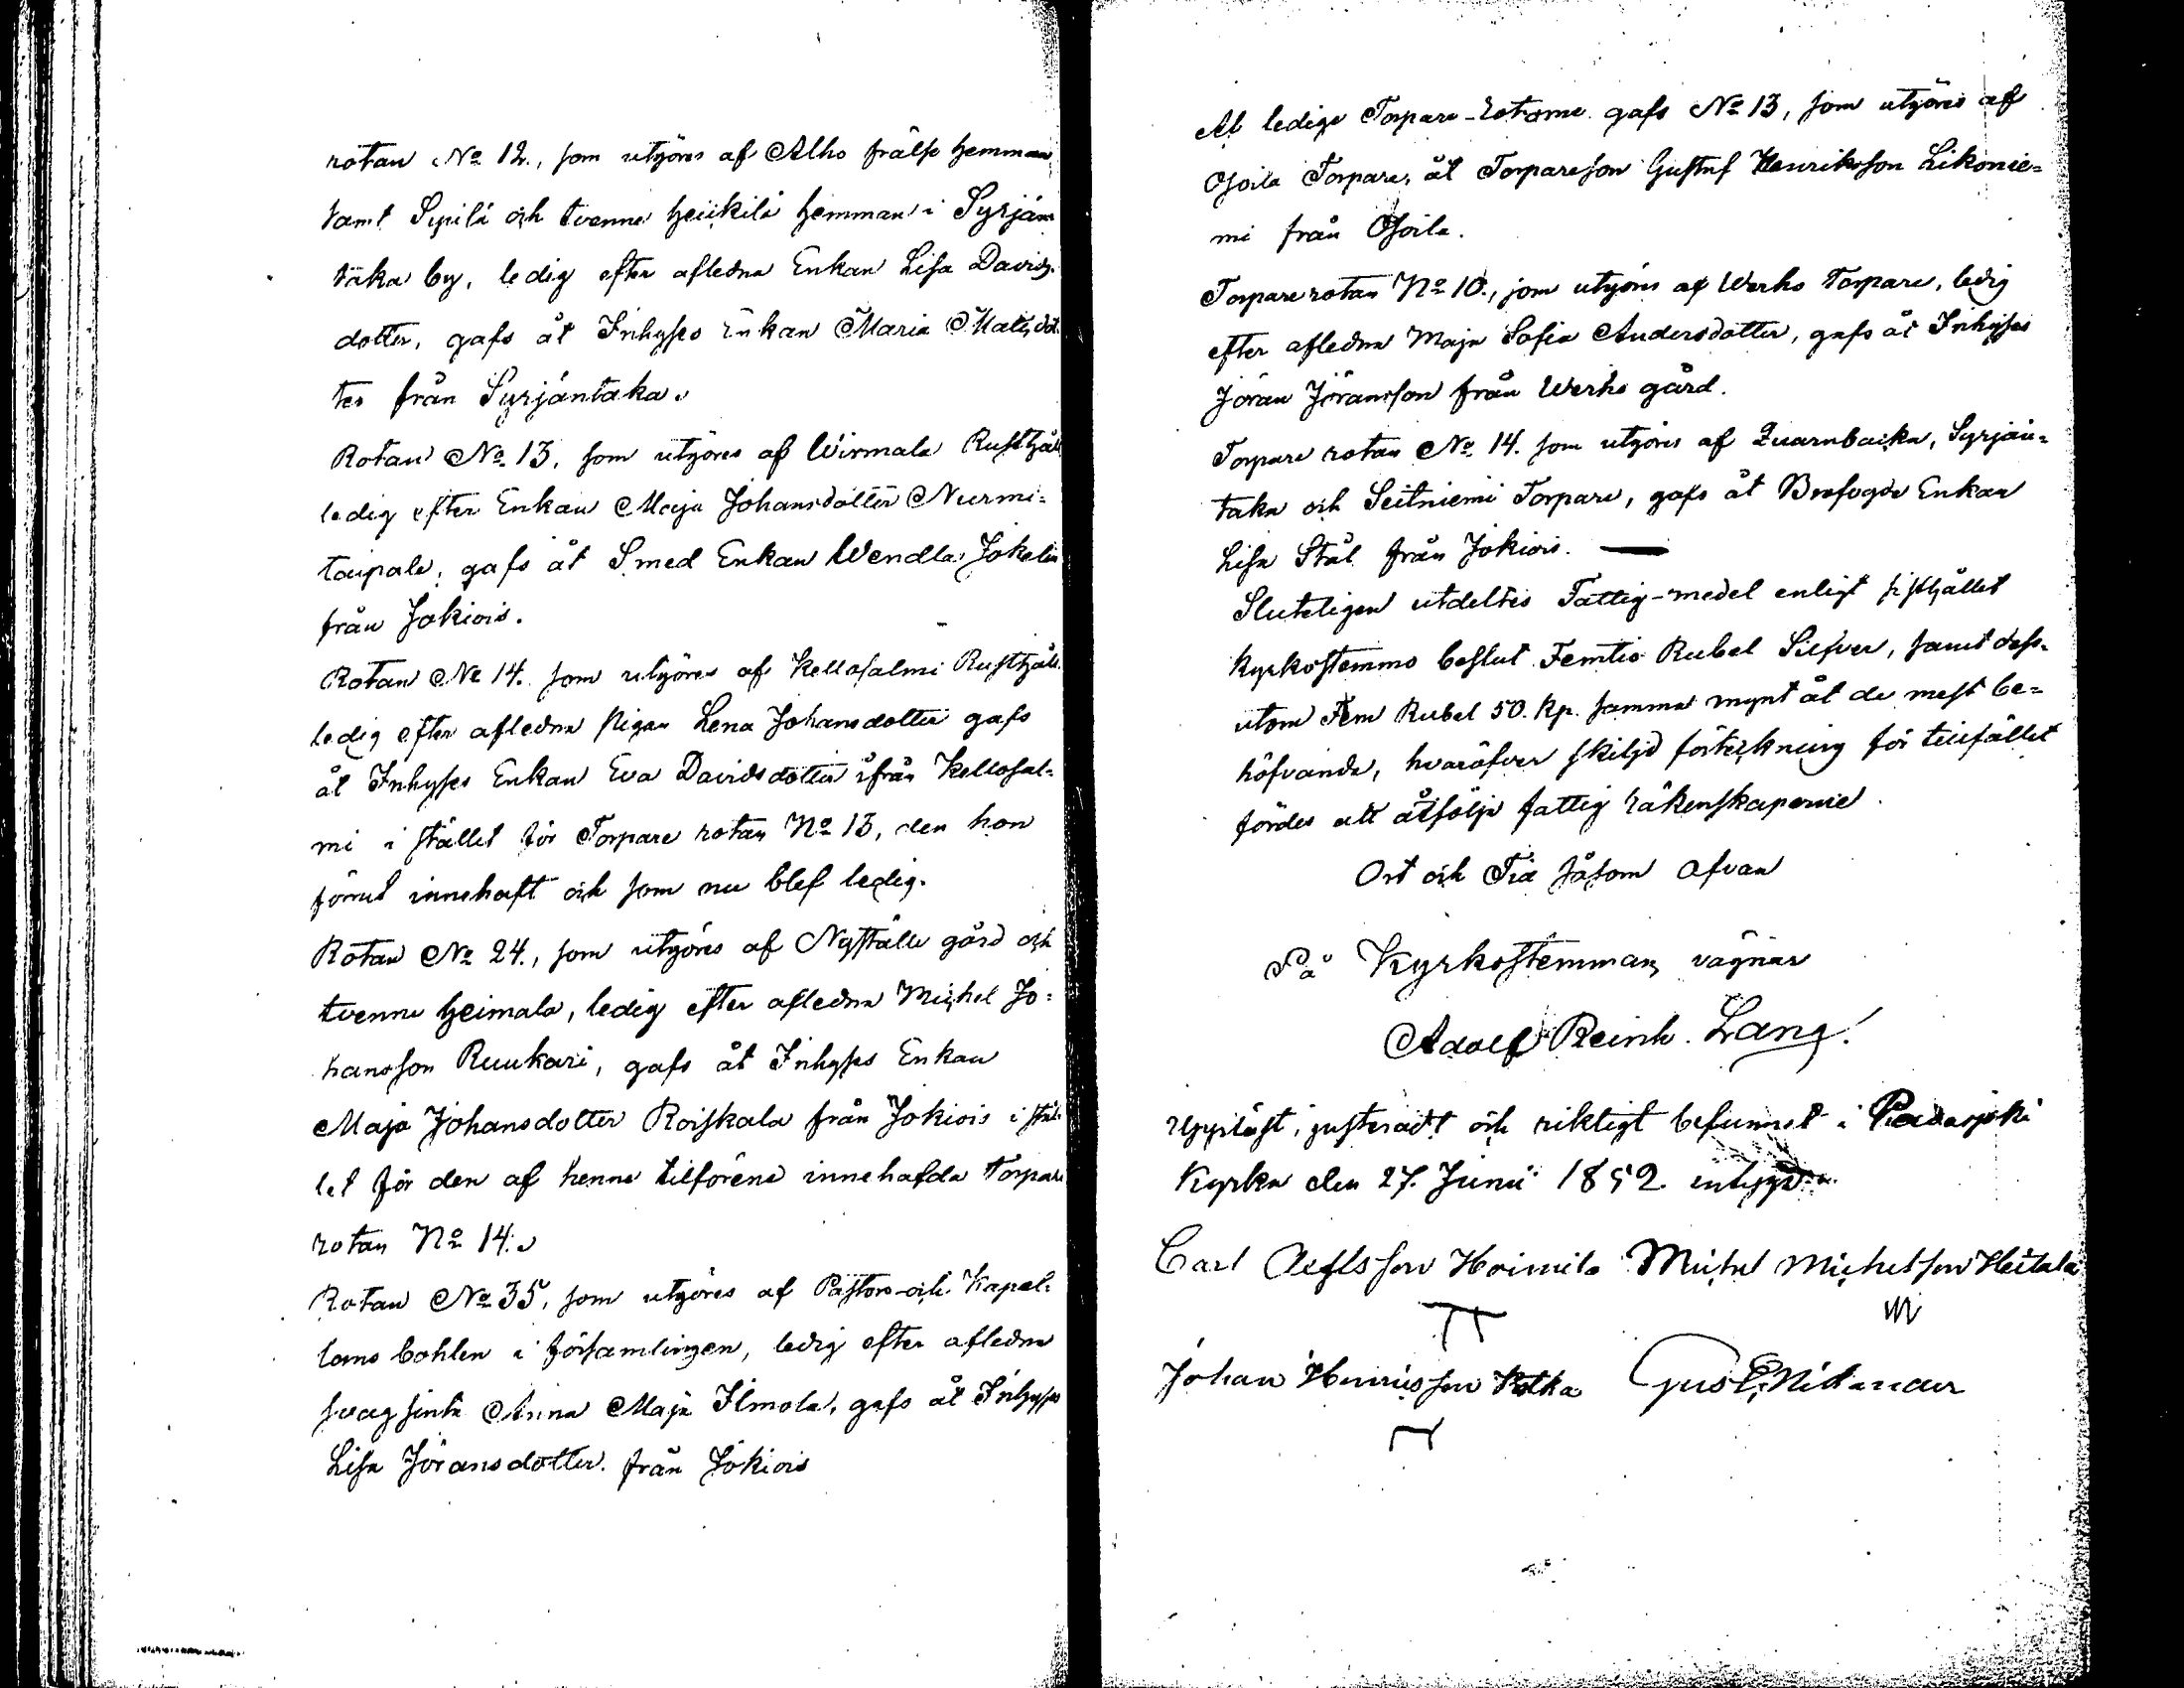 rotan No 12., som utgöres af Alho frälse hemman
samt Sipilä och tvenne Heikkilä hemman i Syrjän
täka by, ledig efter afledna Enkan Lisa Davids
dotter, gafs åt Inhyses Enkan Maria Matsdot
ter från Syrjäntaka.
Rotan No 13, som utgöres af Wirmala Rusthåll
ledig efter Enkan Maja Johansdotter Nurmi=
taipale, gafs åt Smed Enkan Wendla Jokelin
från Jokiois.
Rotan No 14. som utgöres af Kellosalmi Rusthåll
ledig efter afledna pigan Lena Johansdotter gafs
åt Inhyses Enkan Eva Davidsdotter ifrån Kellosal=
mi i stället för Torpare rotan No 13, den hon
förrut innehaft och som nu blef ledig.
Rotan No 24., som utgöres af Nyställe gård och
tvenne Heimala, ledig efter afledna Michel Jo=
hansson Ruukari, gafs åt Inhyses Enkan
Maja Johansdotter Roiskala från Jokiois i stäl=
let för den af henne tilförene innehafda Torpare
rotan No 14.
Rotan No 35, som utgöres af Pastors- och Kapel=
lans bohlen i församlingen, ledig efter afledna
svagsinta Anna Maja Ilmola, gafs åt Inhyses
Lisa Jöransdotter från Jokiois
Af ledige Torpare-rotarne gafs No 13, som utgöres af
Osoila Torpare, åt Torpareson Gustaf Henriksson Likonie=
mi från Osoila.
Torpare rotan No 10., som utgöres af Werho Torpare, ledig
efter afledna Maja Sofia Andersdotter, gafs åt Inhyses
Jöran Jöransson från Werho gård.
Torpare rotan No 14. som utgöres af Quarnbacka, Syrjän=
taka och Seitniemi Torpare, gafs åt Brofogde Enkan
Lisa Stål från Jokiois. —
Sluteligen utdeltes Fattig-medel enligt sisthållet
Kyrkostemmo beslut Femtio Rubel Silfver, samt dess=
utom Fem Rubel 50. Kp. samma mynt åt de mest be=
höfvande, hvaröfver skiljd förteckning för tillfället
fördes att åtfölja fattig räkenskaperne.
Ort och Tid såsom ofvan
På Kyrkostemmans vägnar
Adolf Reinh. Lang.
Uppläst, justeradt och riktigt befunnet i Padasjoki
Kyrka den 27. Junii 1852. intyga
Carl Adlsson Hoimila Michel Michelsson Heitala
Johan Henricsson Kotka Gust.